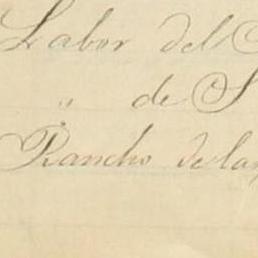 Labor del
" de
Rancho de las